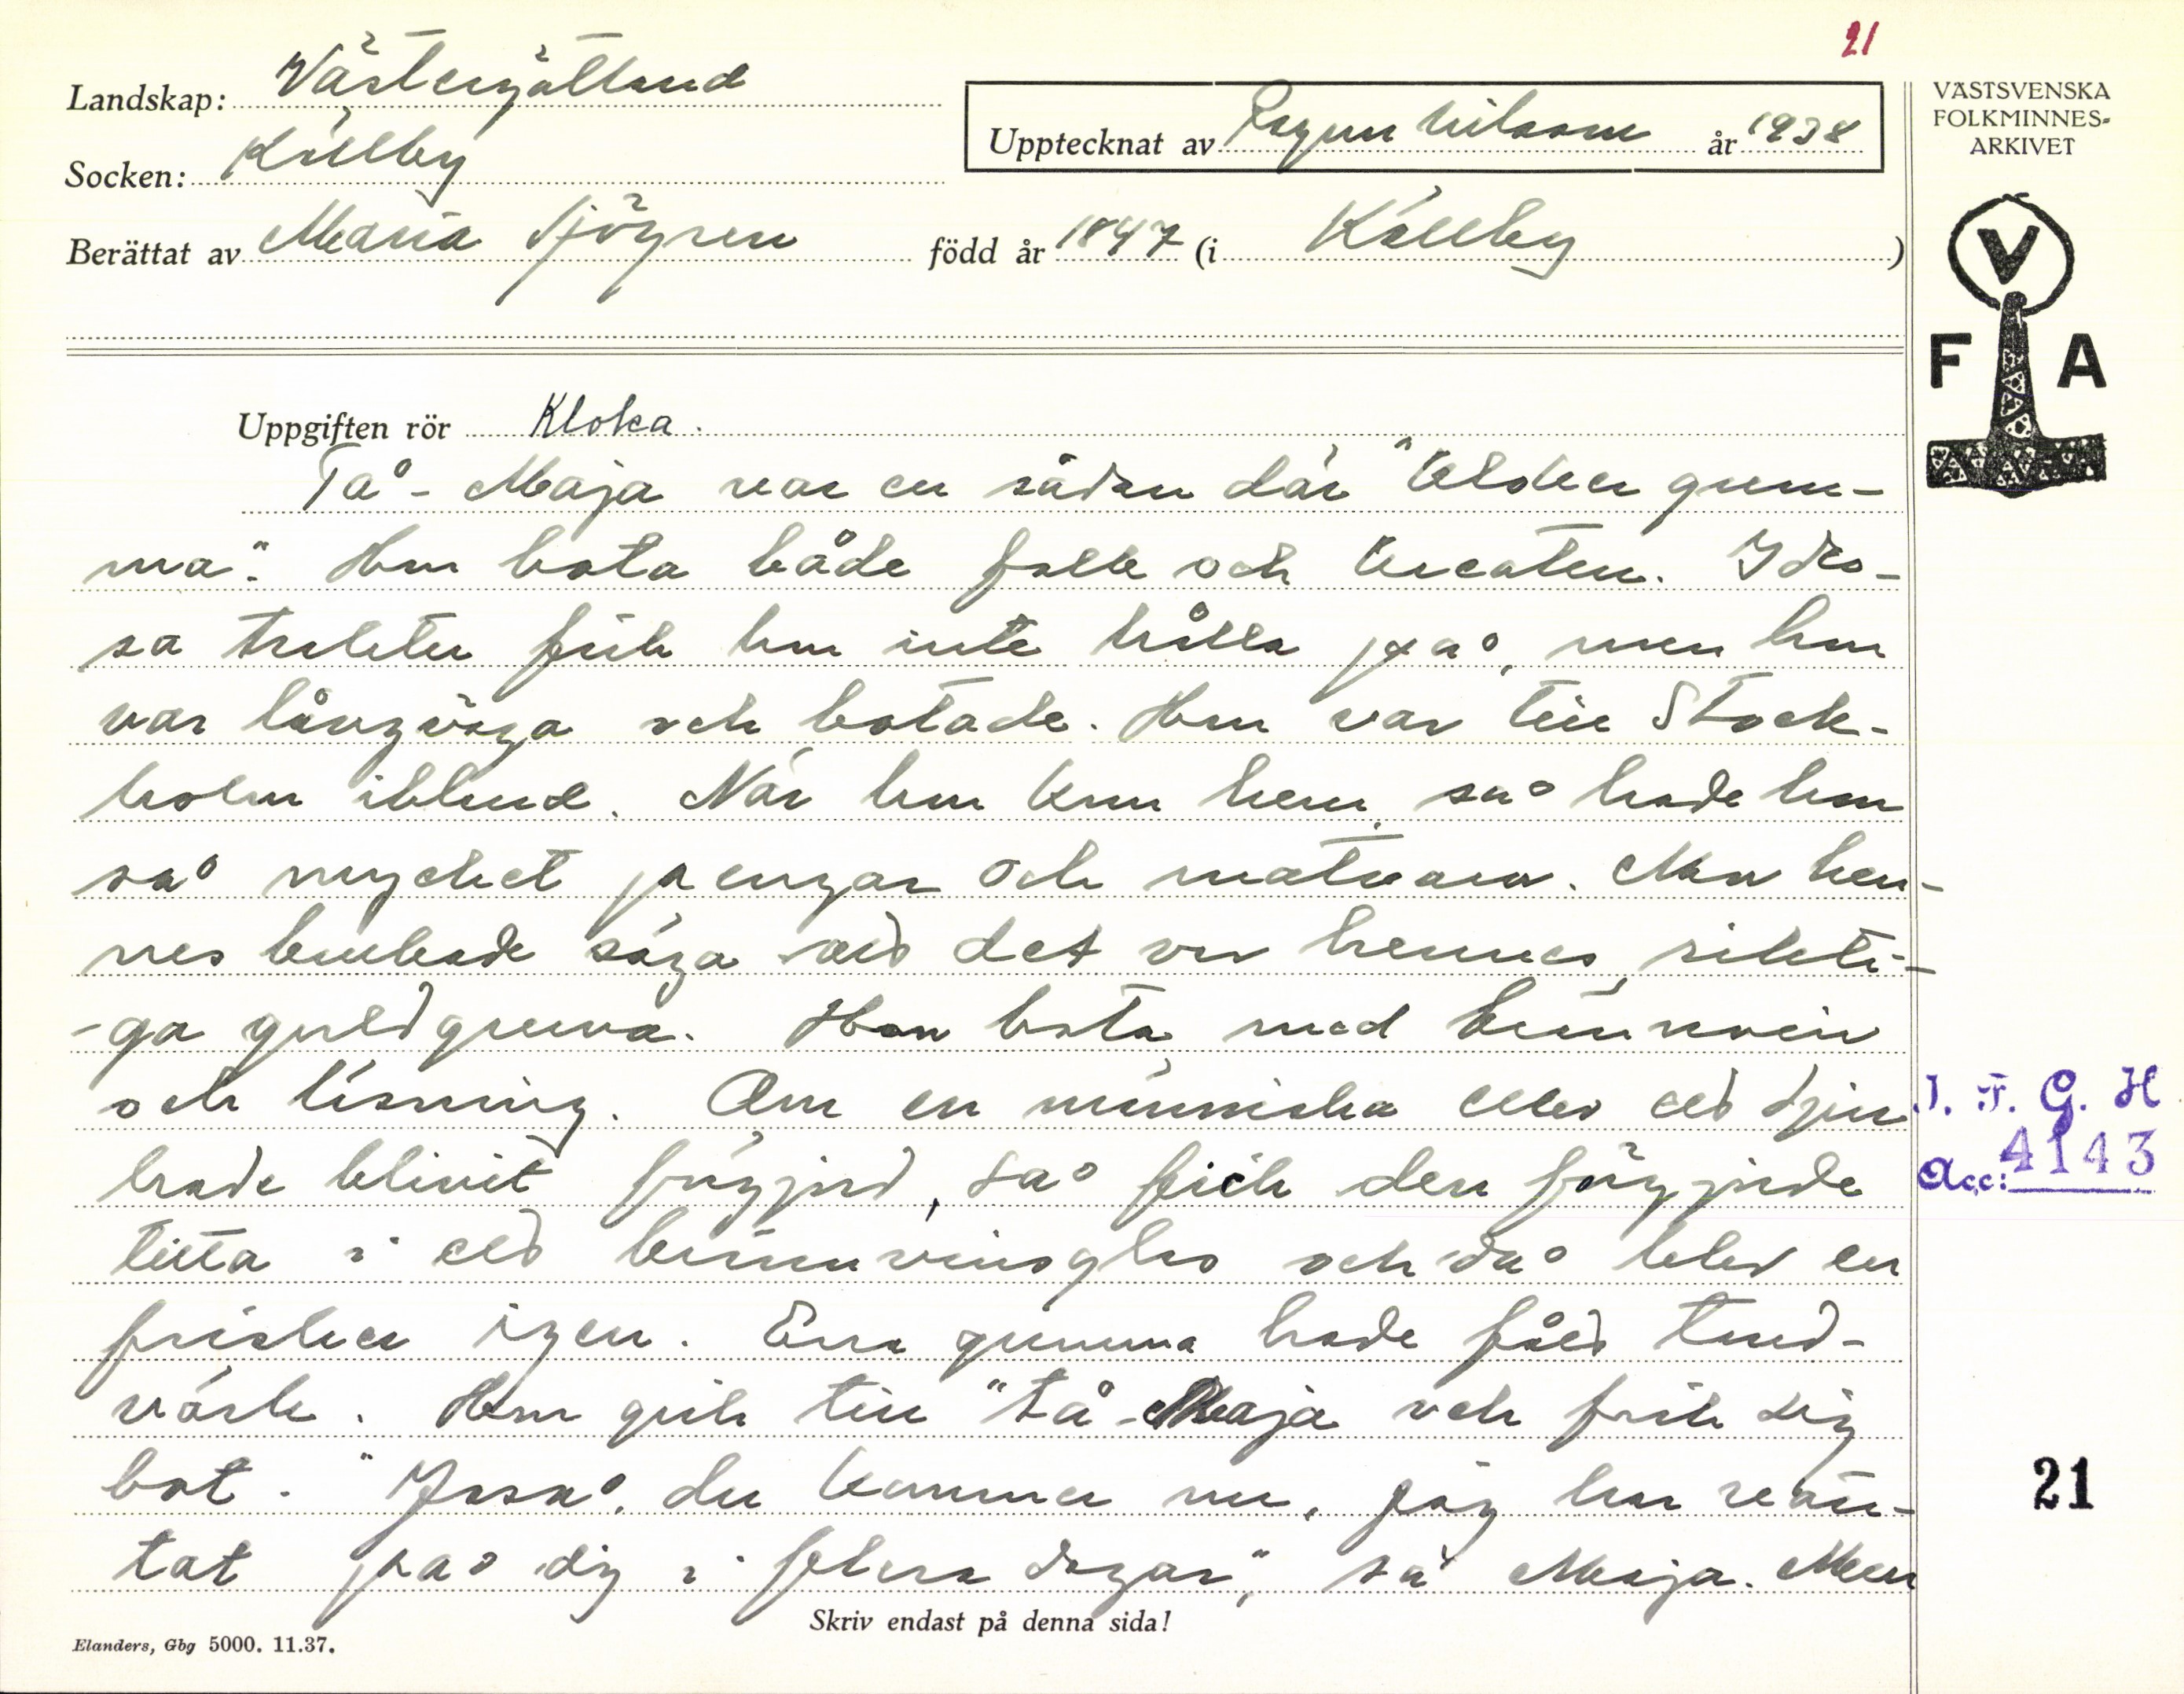 21
Landskap: Västergötland
Socken: Källby
Upptecknat av Ragnar Nilsson år 1938
Berättat av Maria Sjögren född år 1847 (i Källby)
VÄSTSVENSKA
FOLKMINNES-
ARKIVET
V
F A
Uppgiften rör Kloka.
Tå-Maja var en sådan där "kloker gum-
ma". Hon bota både folk och kreatur.
sa trakter fick hon inte hålla på, men hon
var långväga och botade. Hon var till Stock-
holm ibland. När hon kom hem, så hade hon
så mycket pengar och matvaror. Men hen-
nes brukade säga att det var hennes rikti-
-ga guldgruva. Hon bota med brännvin
och läsning. Om en människa eller ett djur
hade blivit förgjord, så fick den förgjorde
titta i ett brännvinsglas och då blev en
frisker igen. Ena gumma hade fått tand-
värk. Hon gick till "Tå-Maja och fick sig
bot. "Jasså, du kommer nu, jag har vän-
tat på dig i flera dagar", sa Maja. Men
I. F. G. H
Acc: 4143
21
Skriv endast på denna sida!
Elanders, Gbg 5000. 11.37.